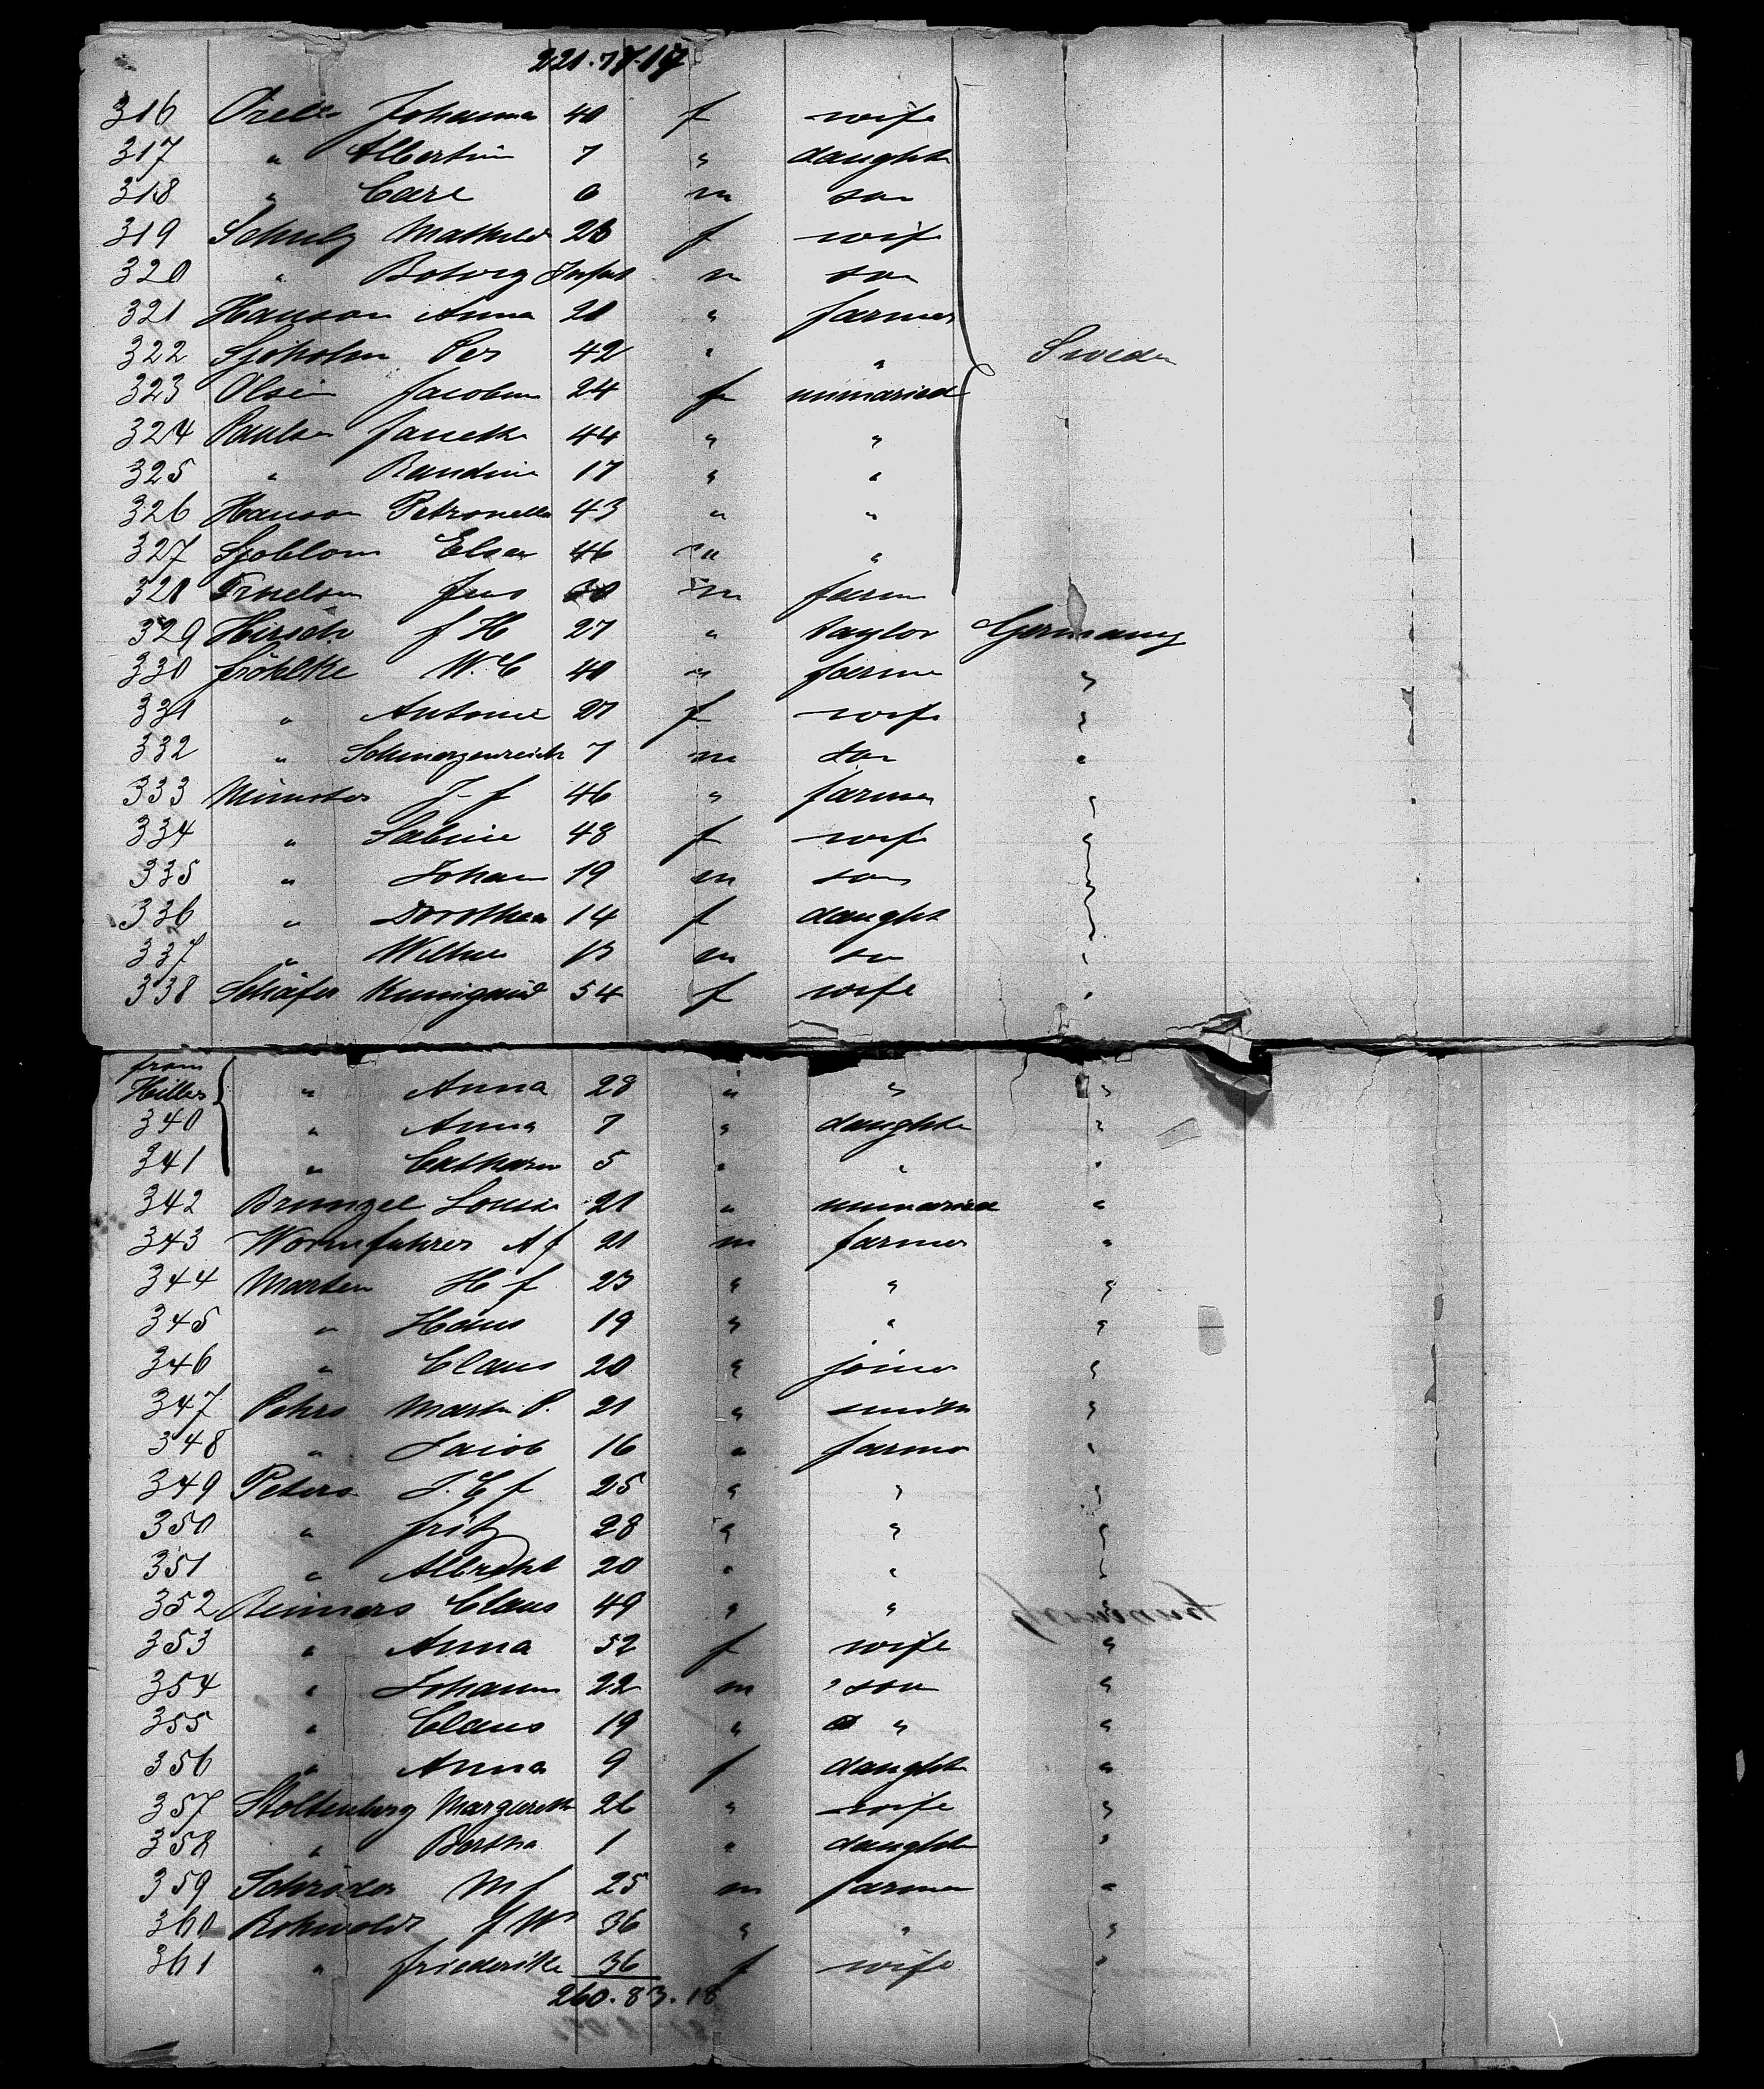 221.77.17
316 Johanna 40 f wife
317 " Albertin 7 " daughte
318 " Carl 6 m son
319 Schulz Mathild 26 f wife
320 " Infant m son
321 Hanson Anna 20 " farmer
322 Sjöholm Per 42 " " Sweden
323 Olsen Jacobin 24 f unmaried
324 Paulsen 44 " "
325 " Randine 17 " "
326 Hanson Petronella 43 " "
327 Sjoblom Elsa 46 " "
328 Jens m farm
329 Hirsch J H 27 " taylor Germany
330 fröhlke W. C 40 " farme "
331 " Antonie 27 f wife "
332 " 7 m son "
333 J f 46 " farmer "
334 " Sabine 48 f wife "
335 " Johan 19 m son "
336 " Dorothea 14 f daught "
337 " Wilhe m son "
338 Schäfer Kunigund 54 f wife "
from
Hiller " Anna 28 " " "
340 " Anna 7 " daughte "
341 " Catharin 5 " " "
342 Louise 21 " unmaried "
343 Wormfuhrer A f 21 m farmer "
344 Marten H f 23 " " "
345 " Hans 19 " " "
346 " Claus 20 " joiner "
347 Pehrs Martin P. 21 " smith "
348 " Jacob 16 " farmer "
349 Peters J. C f 25 " " "
350 " fritz 28 " " "
351 " Albrecht 20 " " "
352 Reimers Claus 49 " " "
353 " Anna 52 f wife "
354 " Johann 22 m son "
355 " Claus 19 " " "
356 " Anna 9 f daughte "
357 Stoltenberg Margareth 26 " wife "
358 " Bertha 1 " daughte "
359 Schröder M f 25 m farmer "
360 Rohwoldt f W 36 " " "
361 " friederike 36 f wife "
260.83.18